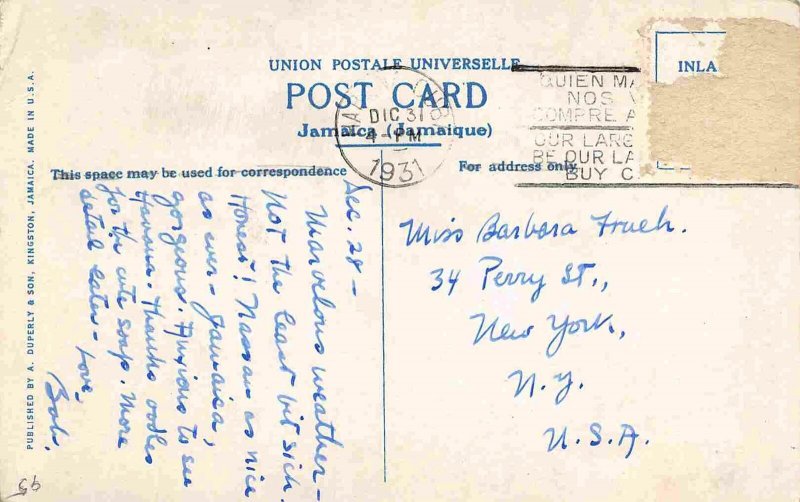 UNION POSTALE UNIVERSELLE
POST CARD
Jamaica (Jamaique)
This space may be used for correspondence
For address only
INLA
DIC 31
4-PM
1931
QUIEN MA
NOS V
COMPRE A
OUR LARG
BE OUR LA
BUY C
Dec. 28 -
Marvelous weather -
Not the least bit sick.
Honest! Nassau as nice
as ever - Jamaica,
gorgeous. Anxious to see
Havana. Thanks oodles
for the cute soap. More
detail later - Love,
Bob.
Miss Barbara Frueh.
34 Perry St.,
New York,
N.Y.
U.S.A.
PUBLISHED BY A. DUPERLY & SON, KINGSTON, JAMAICA. MADE IN U.S.A.
95